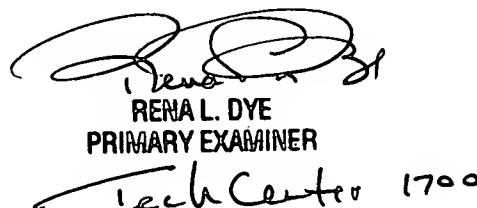 RENA L. DYE
PRIMARY EXAMINER
Tech Center 1700